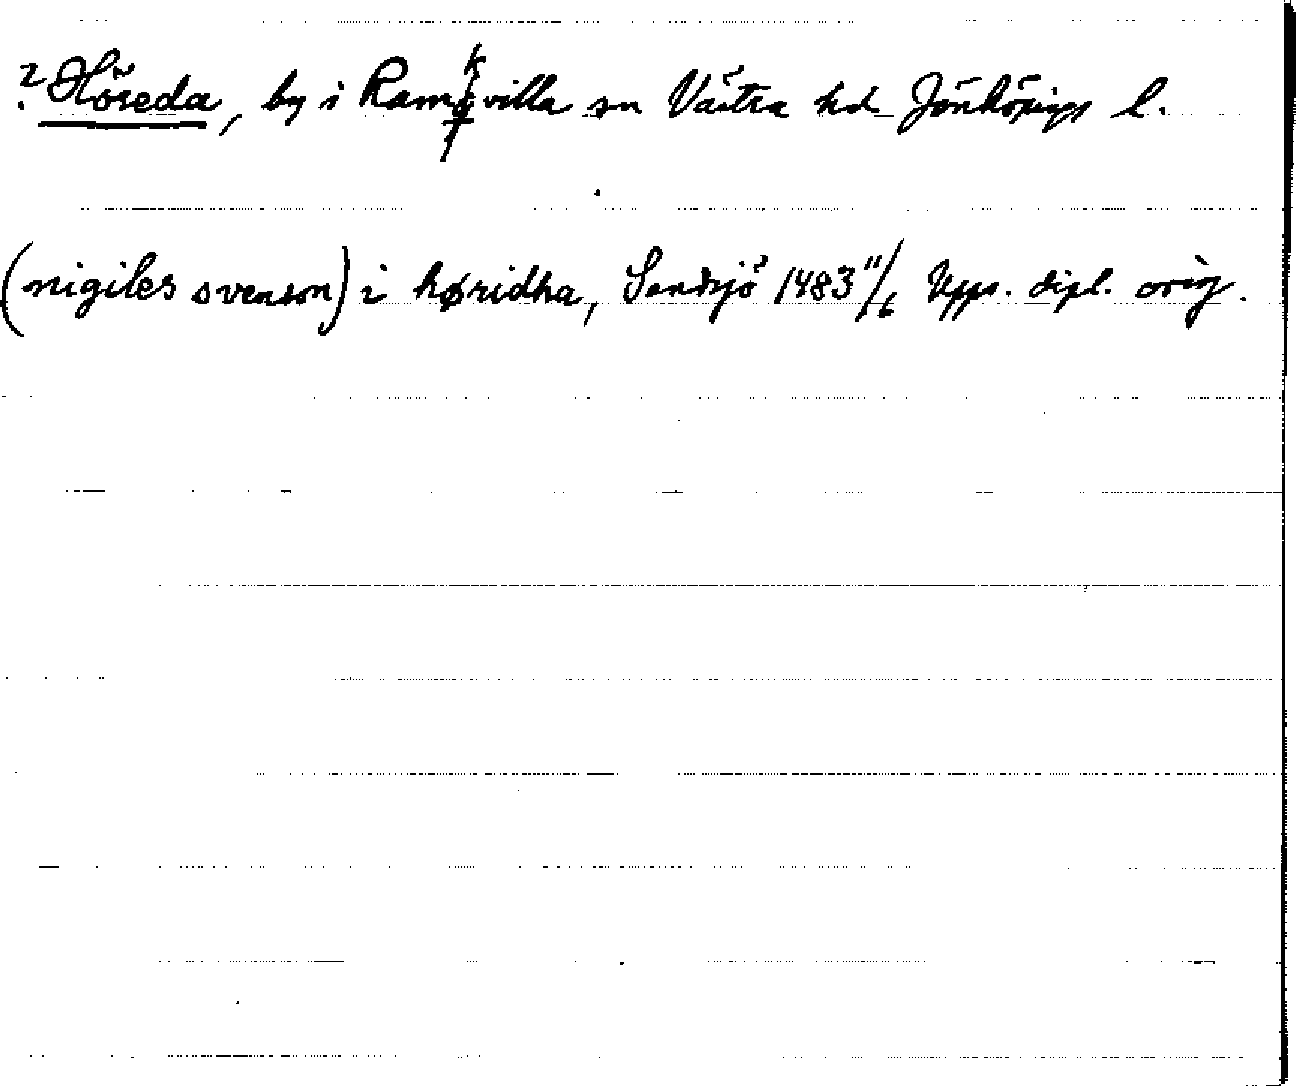 ? Höreda, by i Ramkvilla sn Västra hd Jönköpings l.
(nigiles svenson) i høridha, Sandsjö 1483 11/6 Upps. dipl. orig.